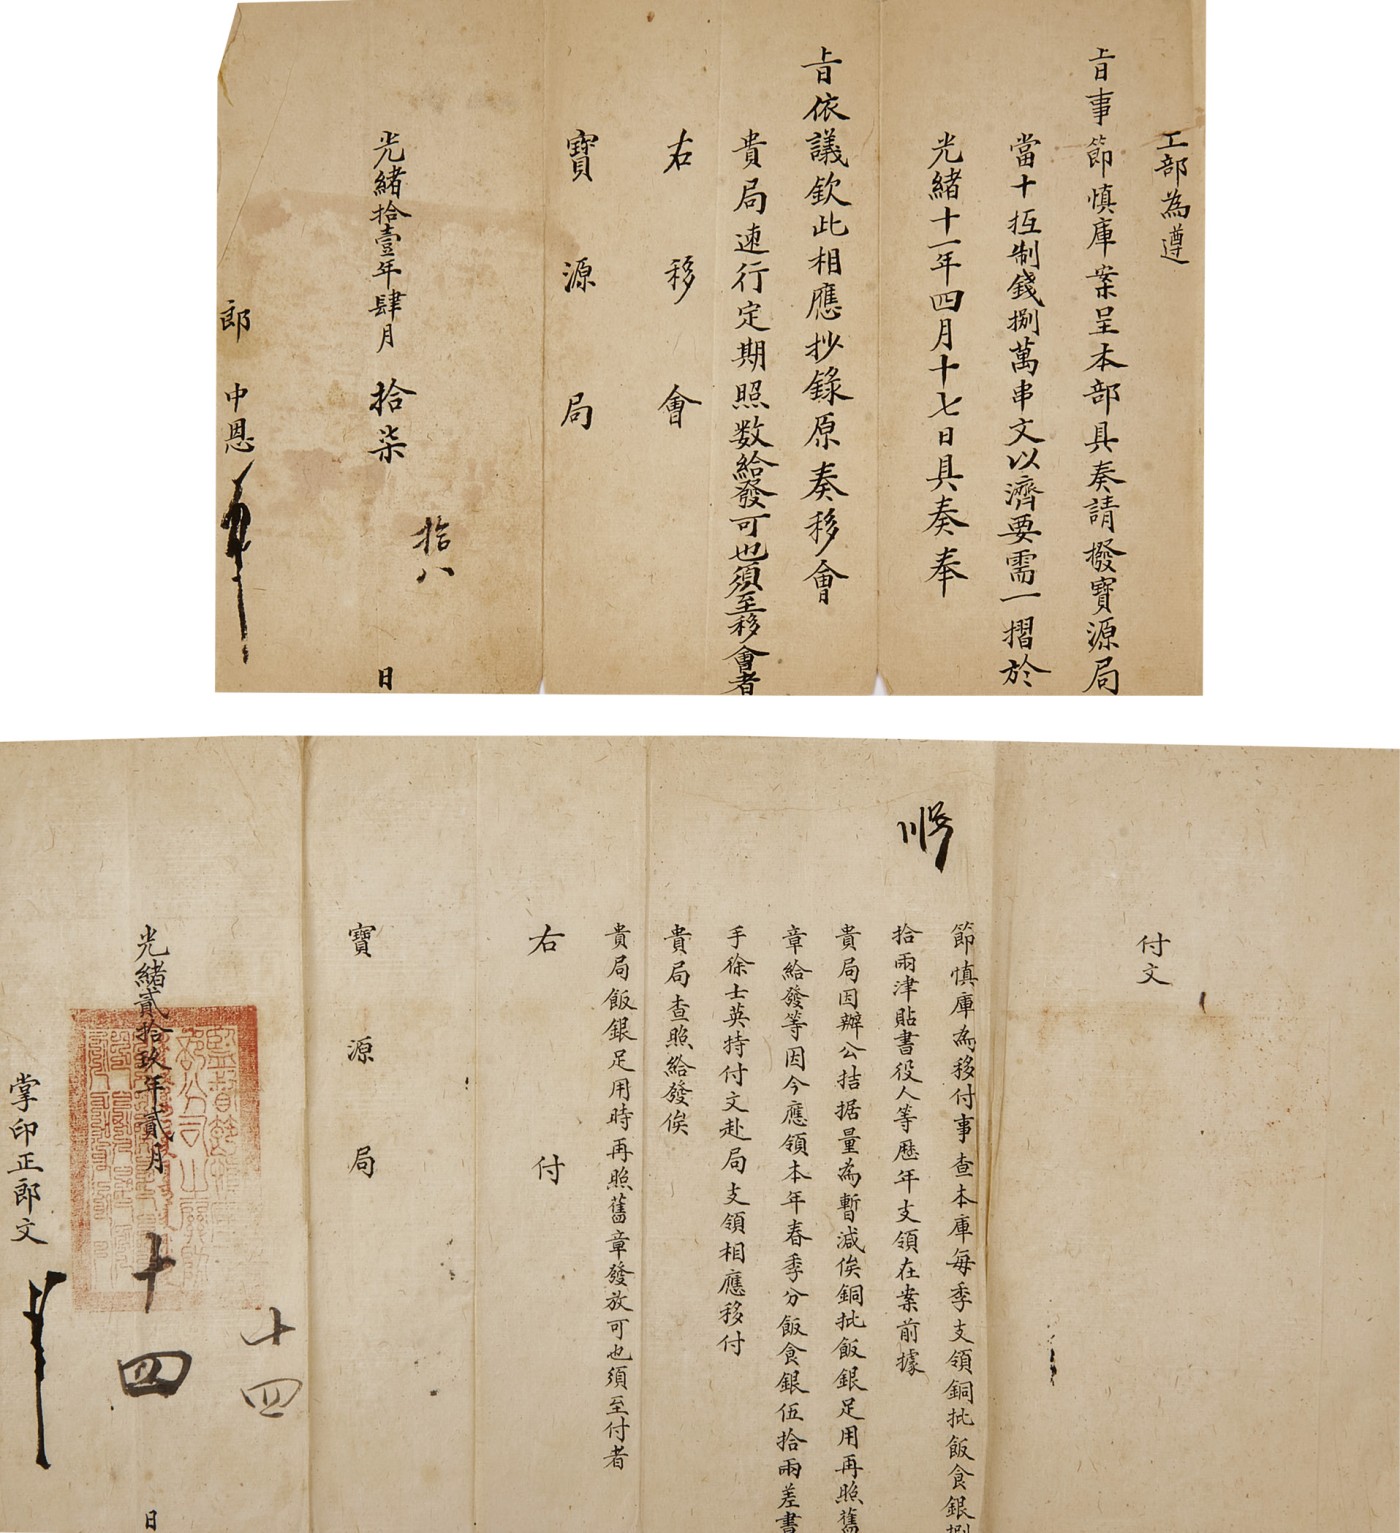 工部為遵
旨事節慎庫案呈本部具奏請撥寶源局
當十抵制錢捌萬串文以濟要需一摺於
光緒十一年四月十七日具奏奉
旨依議欽此相應抄錄原奏移會
貴局速行定期照数給發可也須至移會者
右移會
寶源局
光緒拾壹年肆月拾柒日
拾八
郎中恩
付文
節慎庫為移付事查本庫每季支領銅批飯食銀捌
拾兩津貼書役人等歷年支領在案前據
貴局因辦公拮据量為暫減俟銅批飯銀足用再照舊
章給發等因今應領本年春季分飯食銀伍拾兩差書
手徐士英持付文赴局支領相應移付
貴局查照給發俟
貴局飯銀足用時再照舊章發放可也須至付者
右付
寶源局
光緒貳拾玖年貳月十四日
十四
掌印正郎文